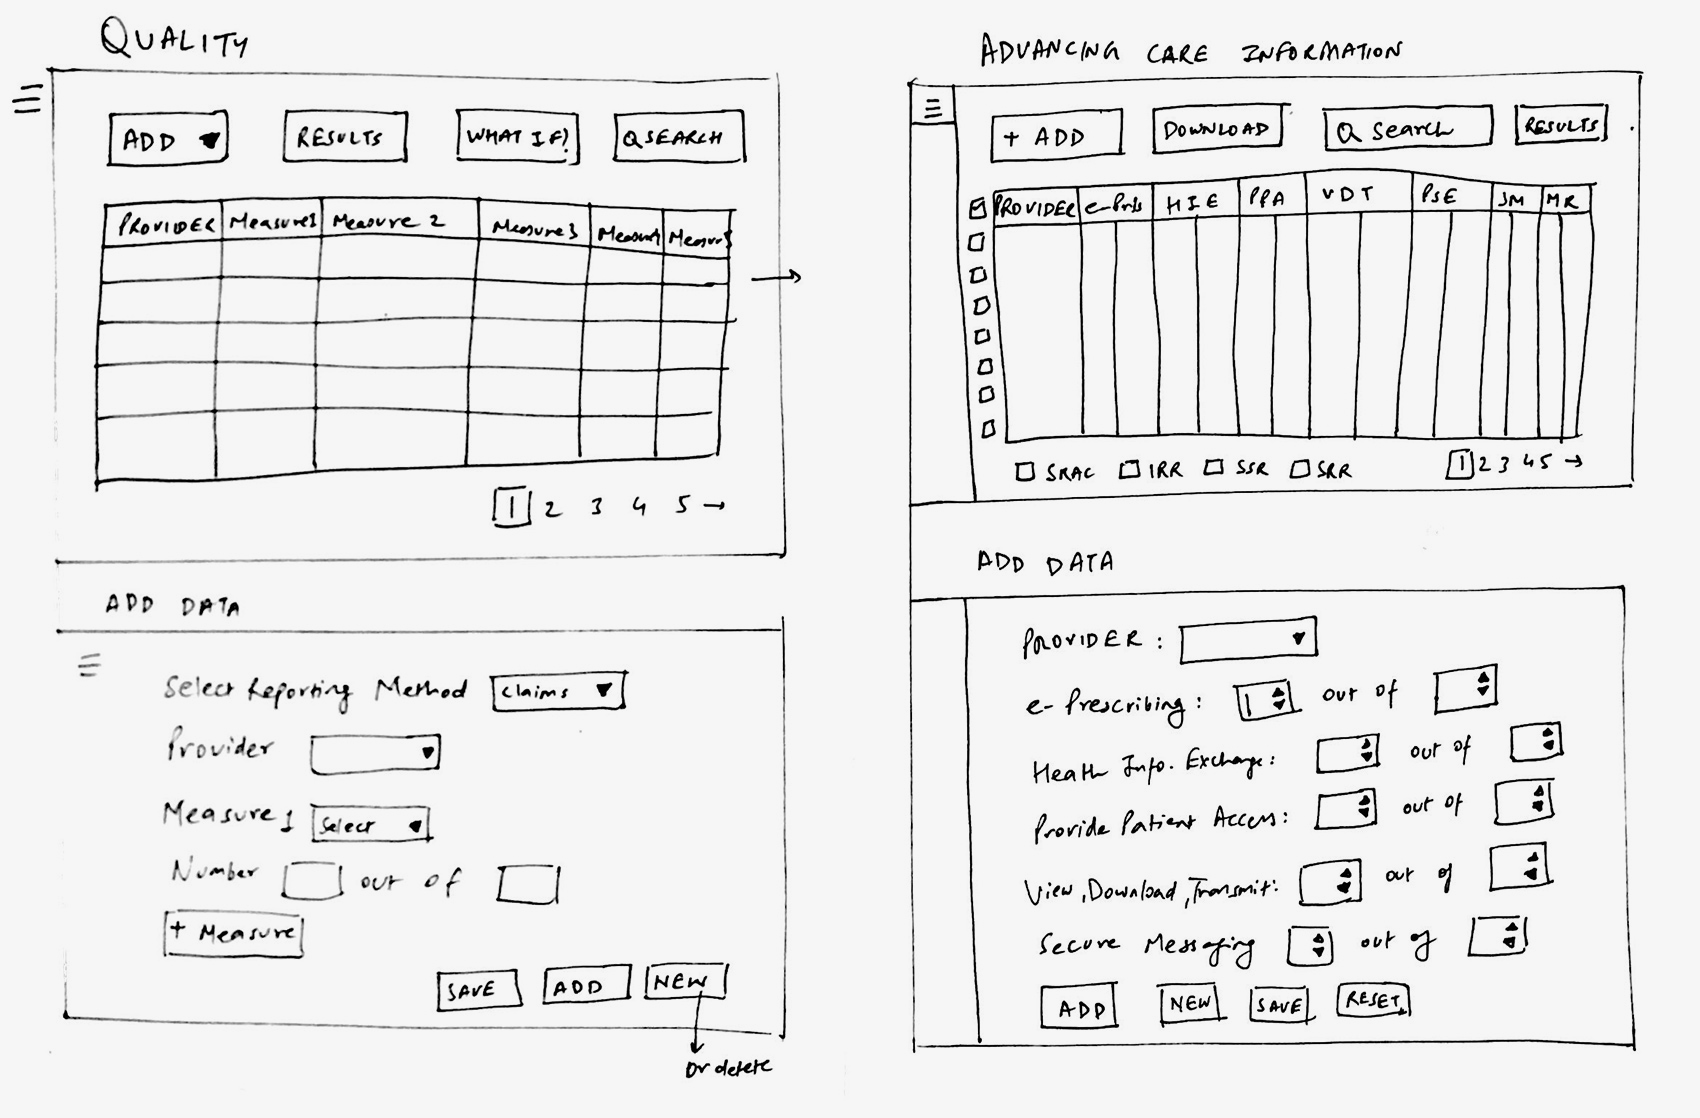 QUALITY
ADD
RESULTS
WHAT IF?
Q SEARCH
PROVIDER Measure1 Measure 2 Measure3 Measure4 Measure5
1 2 3 4 5 →
ADD DATA
Select Reporting Method Claims
Provider
Measure 1 Select
Number out of
+ Measure
SAVE ADD NEW
Or delete
ADVANCING CARE INFORMATION
+ ADD
DOWNLOAD
Q Search
RESULTS
PROVIDER e-Pres HIE PPA VDT PSE SM MR
SRAC IRR SSR SRR
1 2 3 4 5 →
ADD DATA
PROVIDER :
e-Prescribing : 1 out of
Health Info. Exchange : out of
Provide Patient Access : out of
View, Download, Transmit : out of
Secure Messaging out of
ADD NEW SAVE RESET